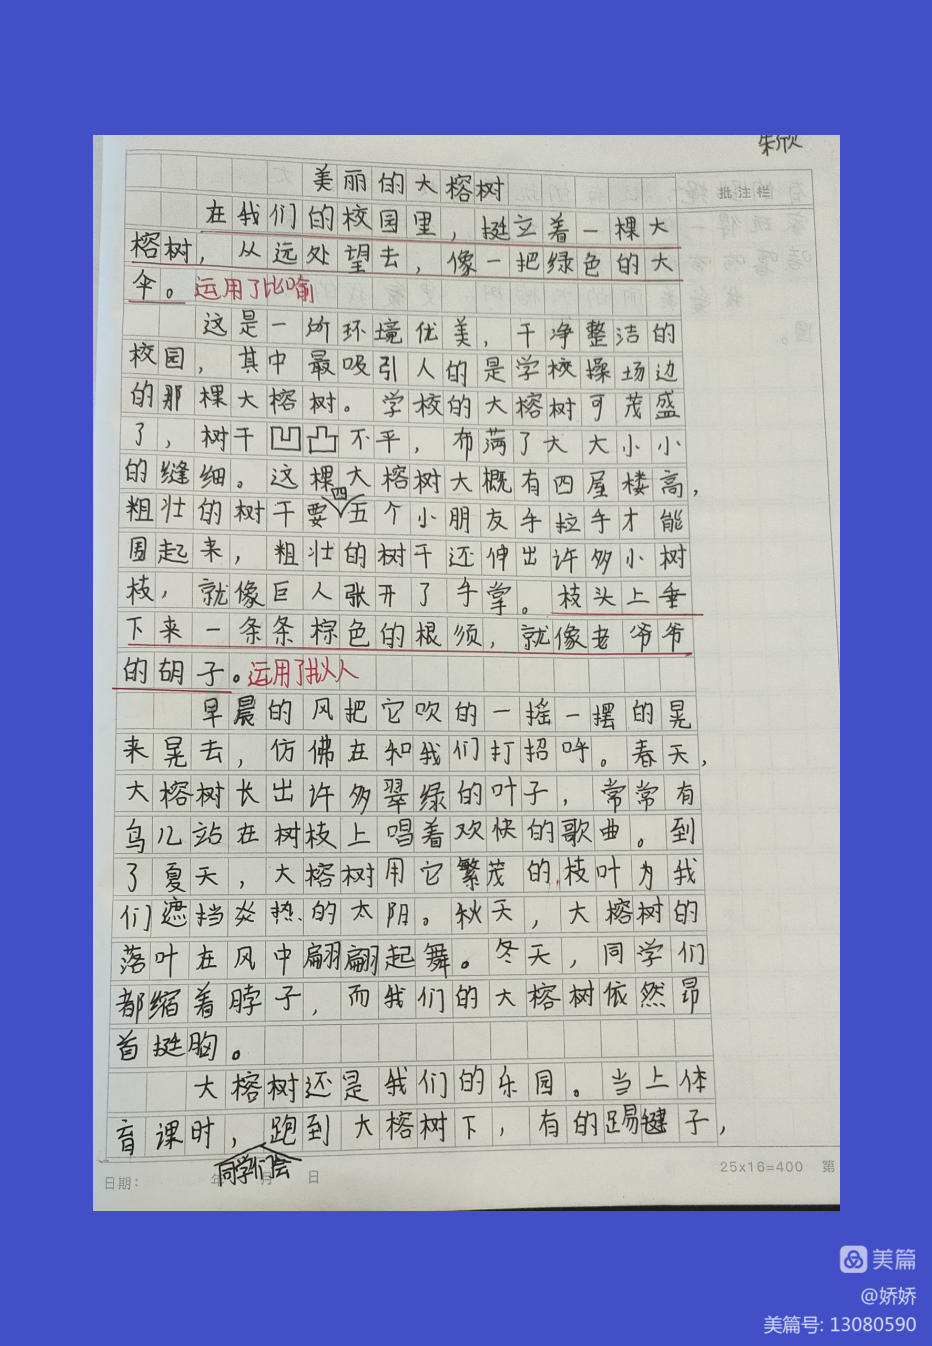 朱欣
美丽的大榕树
批注栏
在我们的校园里，挺立着一棵大
榕树，从远处望去，像一把绿色的大
伞。运用了比喻
这是一所环境优美，干净整洁的
校园，其中最吸引人的是学校操场边
的那棵大榕树。学校的大榕树可茂盛
了，树干凹凸不平，布满了大大小小
的缝细。这棵大榕树大概有四屋楼高，
四
粗壮的树干要五个小朋友手拉手才能
围起来，粗壮的树干还伸出许多小树
枝，就像巨人张开了手掌。枝头上垂
下来一条条棕色的根须，就像老爷爷
的胡子。运用了拟人
早晨的风把它吹的一摇一摆的晃
来晃去，仿佛在和我们打招呼。春天，
大榕树长出许多翠绿的叶子，常常有
鸟儿站在树枝上唱着欢快的歌曲。到
了夏天，大榕树用它繁茂的枝叶为我
们遮挡炎热的太阳。秋天，大榕树的
落叶在风中翩翩起舞。冬天，同学们
都缩着脖子，而我们的大榕树依然昂
首挺胸。
大榕树还是我们的乐园。当上体
育课时，跑到大榕树下，有的踢毽子，
同学们会
日期： 年 月 日
25x16=400 第
美篇
@娇娇
美篇号: 13080590